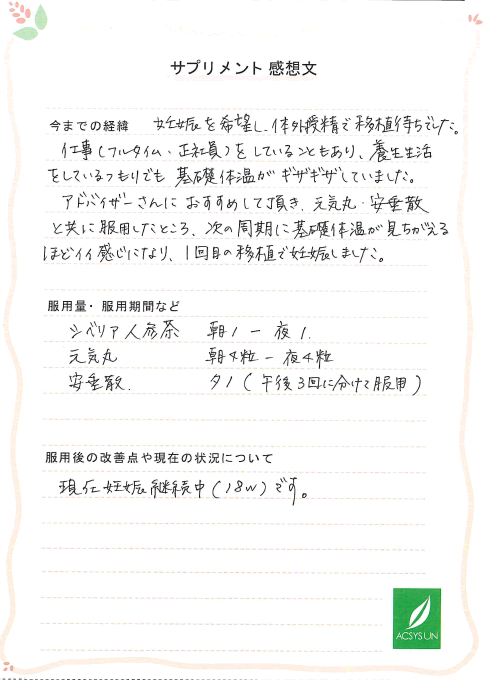 サプリメント 感想文
今までの経緯 妊娠を希望し、体外授精で移植待ちでした。
仕事(フルタイム・正社員)をしていることもあり、養生生活
をしているつもりでも 基礎体温がギザギザしていました。
アドバイザーさんにおすすめして頂き、元気丸・安垂散
と共に服用したところ、次の周期に基礎体温が見ちがえる
ほどイイ感じになり、1回目の移植で妊娠しました。
服用量・服用期間など
シベリア人参茶 朝1 ー 夜1.
元気丸 朝4粒 ー 夜4粒
安垂散. 夕1 (午後3回に分けて服用)
服用後の改善点や現在の状況について
現在妊娠継続中(18w)です。
ACSYSUN